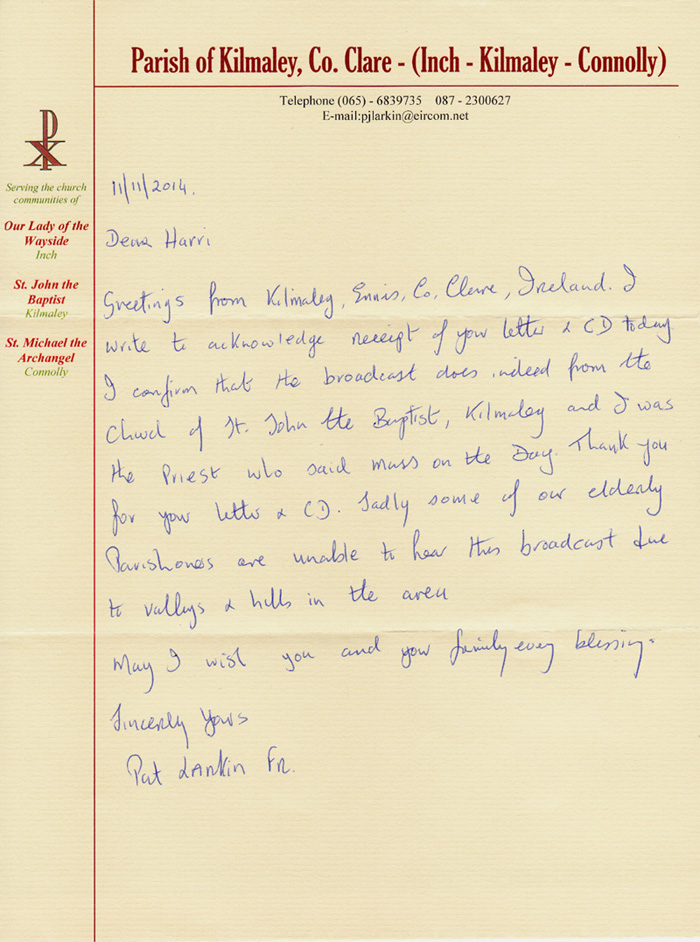 Parish of Kilmaley, Co. Clare - (Inch - Kilmaley - Connolly)
Telephone (065) - 6839735 087 - 2300627
E-mail:pjlarkin@eircom.net
Serving the church
communities of
Our Lady of the
Wayside
Inch
St. John the
Baptist
Kilmaley
St. Michael the
Archangel
Connolly
11/11/2014.
Dear Harri
Greetings from Kilmaley, Ennis, Co, Clare, Ireland. I
write to acknowledge receipt of your letter & CD today
I confirm that the broadcast does indeed from the
Church of St. John the Baptist, Kilmaley and I was
the Priest who said mass on the Day. Thank you
for your letter & CD. Sadly some of our elderly
Parishoners are unable to hear this broadcast due
to valleys & hills in the area
May I wish you and your family every blessing.
Sincerly Yours
Pat Larkin Fr.